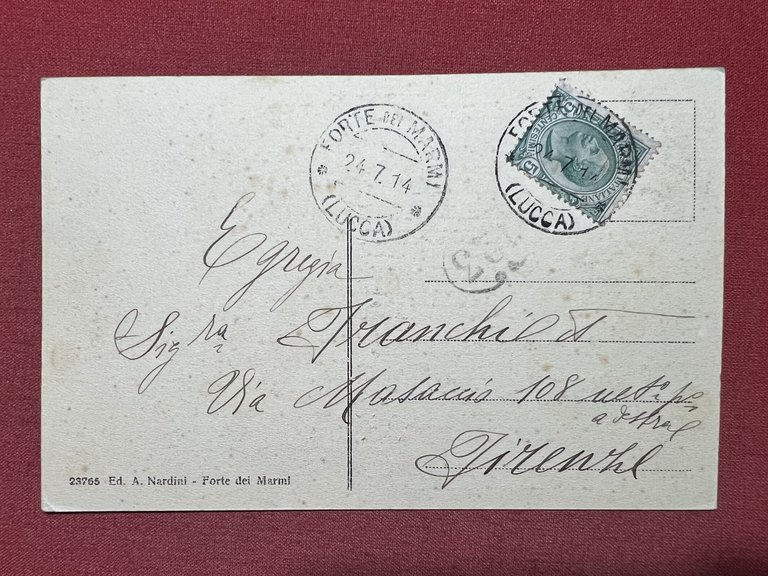 FORTE DEI MARMI
24.7.14
(LUCCA)
FORTE DEI MARMI
24.7.14
(LUCCA)
CENTESIMI 5
Egregia
Sigra Franchi
Via Masaccio 108
a destra
Firenze
23765 Ed. A. Nardini - Forte dei Marmi